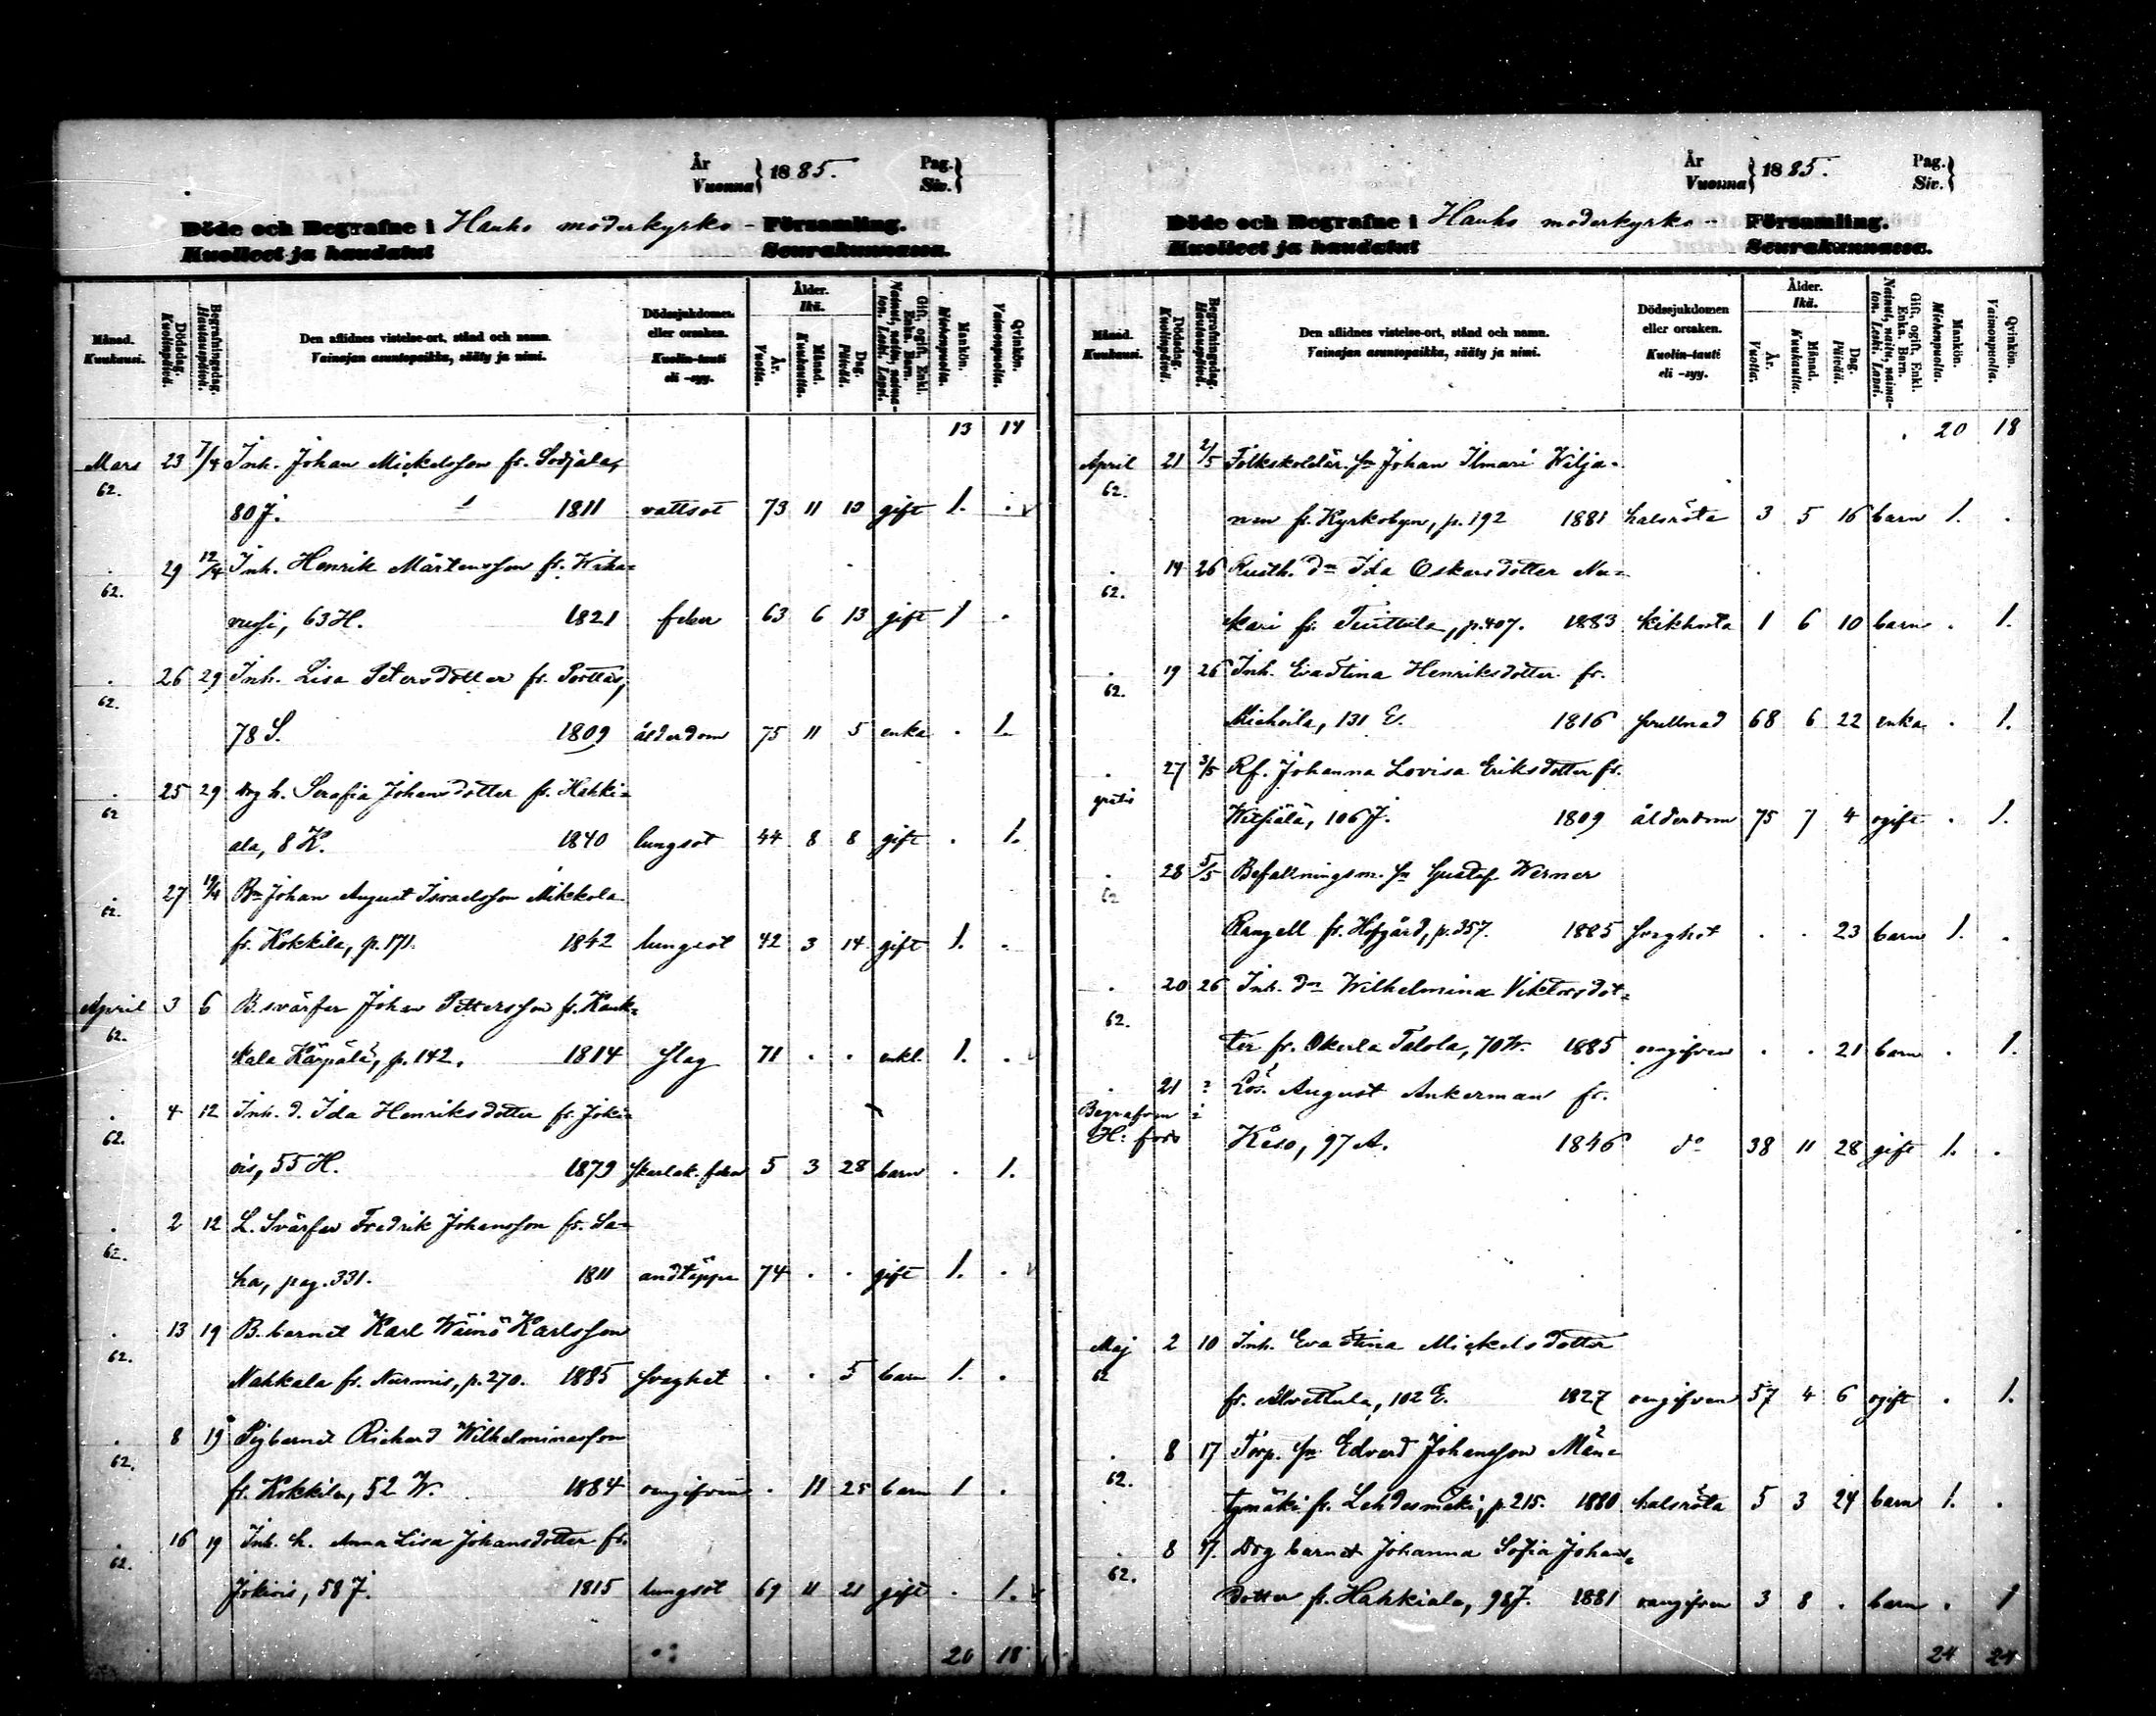 År
Vuonna } 1885.
Pag.
Siv. }
Döde och Begrafne i Hauho moderkyrko- Församling.
Kuolleet ja haudatut Seurakunnassa.
Månad. Kuukausi.
Dödsdag. Kuolinpäivä.
Begrafningsdag. Hautauspäivä.
Den aflidnes vistelse-ort, stånd och namn.
Vainajan asuntopaikka, sääty ja nimi.
Dödssjukdomen eller orsaken.
Kuolin-tauti eli -syy.
Ålder. Ikä.
År. Vuotta.
Månad. Kuukautta.
Dag. Päivää.
Gift, ogift, Enkl. Enka. Barn.
Nainut, naitu, naima-ton. Leski. Lapsi.
Mankön. Miehenpuolta.
Qvinkön. Vaimonpuolta.
13 14
Mars 23 7/4 Inh. Johan Mickelsson fr. Sotjala,
62. 80 J. 1811 vattsot 73 11 10 gift 1. .
. 29 12/4 Inh. Henrik Mårtensson fr. Wiha-
62. vusi, 63 H. 1821 feber 63 6 13 gift 1 .
. 26 29 Inh. Lisa Petersdotter fr. Porttas,
62. 78 S. 1809 ålderdom 75 11 5 enka . 1.
. 25 29 Drg h. Serafia Johansdotter fr. Hahki-
62 ala, 8 K. 1840 lungsot 44 8 8 gift . 1.
. 27 19/4 Bn Johan August Israelsson Mikkola
62. fr. Kokkila, p. 171. 1842 lungsot 42 3 14 gift 1. .
April 3 6 B. svärfar Johan Pettersson fr. Kank-
62. kala Kärpälä, p. 142. 1814 slag 71 . . enkl. 1. .
. 4 12 Inh. d. Ida Henriksdotter fr. Joki-
62. ois, 55 H. 1879 skarlak. feber 5 3 28 barn . 1.
. 2 12 L. Svärfar Fredrik Johansson fr. Sa-
62. ha, pag. 331. 1811 andtäppa 74 . . gift 1. .
. 13 19 B. barnet Karl Wäinö Karlsson
62. Nahkala fr. Nurmis, p. 270. 1885 svaghet . . 5 barn 1. .
. 8 19 Pigbarnet Richard Wilhelminasson
62. fr. Kokkila, 52 W. 1884 oangifven . 11 25 barn 1 .
. 16 19 Inh. h. Anna Lisa Johansdotter fr.
62. Jokiois, 58 J. 1815 lungsot 69 11 21 gift . 1.
20 18
År
Vuonna } 1885.
Pag.
Siv. }
Döde och Begrafne i Hauho moderkyrko- Församling.
Kuolleet ja haudatut Seurakunnassa.
Månad. Kuukausi.
Dödsdag. Kuolinpäivä.
Begrafningsdag. Hautauspäivä.
Den aflidnes vistelse-ort, stånd och namn.
Vainajan asuntopaikka, sääty ja nimi.
Dödssjukdomen eller orsaken.
Kuolin-tauti eli -syy.
Ålder. Ikä.
År. Vuotta.
Månad. Kuukautta.
Dag. Päivää.
Gift, ogift, Enkl. Enka. Barn.
Nainut, naitu, naima-ton. Leski. Lapsi.
Mankön. Miehenpuolta.
Qvinkön. Vaimonpuolta.
20 18
April 21 2/5 Folkskolelär. sn Johan Ilmari Wilja-
62. nen fr. Kyrkobyn, p. 192 1881 halsröta 3 5 16 barn 1. .
. 14 26 Rusth. dn Ida Oskarsdotter Nu-
62. kari fr. Teittula, p. 407. 1883 Kikhosta 1 6 10 barn . 1.
. 19 26 Inh. Eva Stina Henriksdotter fr.
62. Miehoila, 131 E. 1816 svullnad 68 6 22 enka . 1.
. 27 3/5 Rf. Johanna Lovisa Eriksdotter fr.
gratis Witsiälä, 106 J. 1809 ålderdom 75 7 4 ogift . 1.
. 28 5/5 Befallningsm. sn Gustaf Werner
62 Rangell fr. Hofgård, p. 357. 1885 svaghet . . 23 barn 1. .
. 20 26 Inh. dn Wilhelmina Viktorsdot-
62. ter fr. Okerla Talola, 70 W. 1885 oangifven . . 21 barn . 1.
. 21 ? Lös. August Ankerman fr.
Begrafven i
H:fors Keso, 97 A. 1846 do 38 11 28 gift 1. .
Maj 2 10 Inh. Eva Stina Mickelsdotter
62 fr. Alvettula, 102 E. 1827 oangifven 57 4 6 ogift . 1.
. 8 17 Torp. sn Edvard Johansson Män-
62. tymäki fr. Lehdesmäki, p. 215. 1880 halsröta 5 3 24 barn 1. .
. 8 17. Drg barnet Johanna Sofia Johans-
62. dotter fr. Hahkiala, 98 J. 1881 oangifven 3 8 . barn . 1
24 24